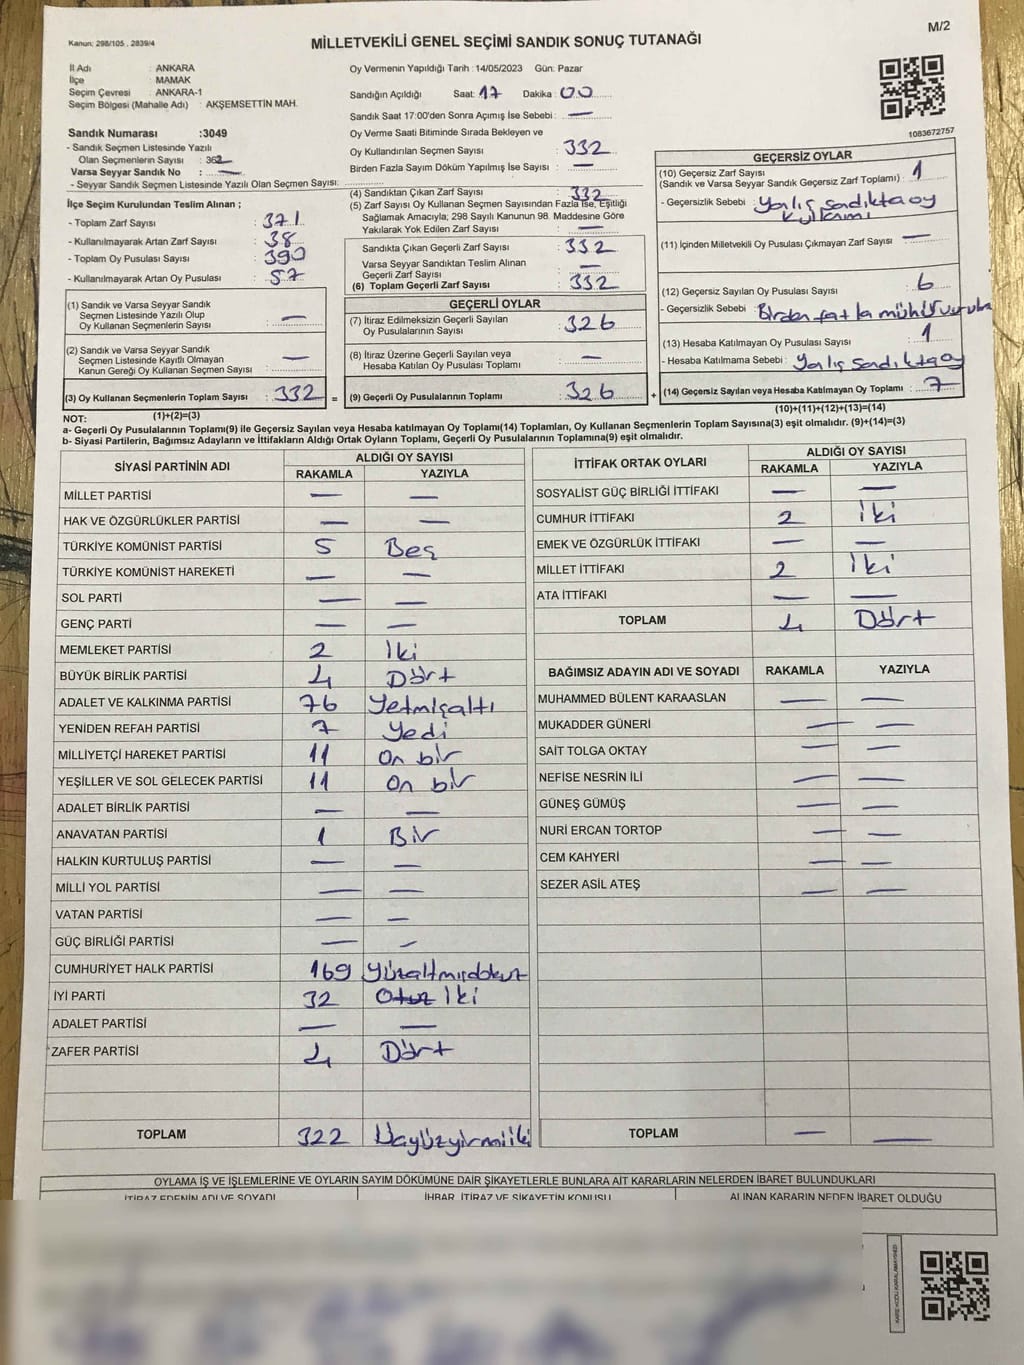 M/2
Kanun: 298/105 , 2839/4
MİLLETVEKİLİ GENEL SEÇİMİ SANDIK SONUÇ TUTANAĞI
İl Adı : ANKARA
İlçe : MAMAK
Seçim Çevresi : ANKARA-1
Seçim Bölgesi (Mahalle Adı) : AKŞEMSETTİN MAH.
Sandık Numarası :3049
- Sandık Seçmen Listesinde Yazılı
Olan Seçmenlerin Sayısı : 362
Varsa Seyyar Sandık No : —
- Seyyar Sandık Seçmen Listesinde Yazılı Olan Seçmen Sayısı:
İlçe Seçim Kurulundan Teslim Alınan ;
- Toplam Zarf Sayısı : 371
- Kullanılmayarak Artan Zarf Sayısı : 38
- Toplam Oy Pusulası Sayısı : 390
- Kullanılmayarak Artan Oy Pusulası : 57
(1) Sandık ve Varsa Seyyar Sandık
Seçmen Listesinde Yazılı Olup
Oy Kullanan Seçmenlerin Sayısı : —
(2) Sandık ve Varsa Seyyar Sandık
Seçmen Listesinde Kayıtlı Olmayan
Kanun Gereği Oy Kullanan Seçmen Sayısı : —
(3) Oy Kullanan Seçmenlerin Toplam Sayısı : 332 =
Oy Vermenin Yapıldığı Tarih : 14/05/2023 Gün: Pazar
Sandığın Açıldığı Saat: 17 Dakika : 00
Sandık Saat 17:00'den Sonra Açımış İse Sebebi : —
Oy Verme Saati Bitiminde Sırada Bekleyen ve
Oy Kullandırılan Seçmen Sayısı : 332
Birden Fazla Sayım Döküm Yapılmış İse Sayısı : —
(4) Sandıktan Çıkan Zarf Sayısı : 332
(5) Zarf Sayısı Oy Kullanan Seçmen Sayısından Fazla İse, Eşitliği
Sağlamak Amacıyla; 298 Sayılı Kanunun 98. Maddesine Göre
Yakılarak Yok Edilen Zarf Sayısı : —
Sandıkta Çıkan Geçerli Zarf Sayısı : 332
Varsa Seyyar Sandıktan Teslim Alınan
Geçerli Zarf Sayısı : —
(6) Toplam Geçerli Zarf Sayısı : 332
GEÇERLİ OYLAR
(7) İtiraz Edilmeksizin Geçerli Sayılan
Oy Pusulalarının Sayısı : 326
(8) İtiraz Üzerine Geçerli Sayılan veya
Hesaba Katılan Oy Pusulası Toplamı : —
(9) Geçerli Oy Pusulalarının Toplamı : 326 +
1083672757
GEÇERSİZ OYLAR
(10) Geçersiz Zarf Sayısı
(Sandık ve Varsa Seyyar Sandık Geçersiz Zarf Toplamı) : 1
- Geçersizlik Sebebi : Yanlış sandıkta oy
kullanımı
(11) İçinden Milletvekili Oy Pusulası Çıkmayan Zarf Sayısı : —
(12) Geçersiz Sayılan Oy Pusulası Sayısı : 6
- Geçersizlik Sebebi : Birden fazla mühür vurulma
(13) Hesaba Katılmayan Oy Pusulası Sayısı : 1
- Hesaba Katılmama Sebebi : Yanlış sandıkta oy
(14) Geçersiz Sayılan veya Hesaba Katılmayan Oy Toplamı : 7
NOT: (1)+(2)=(3) (10)+(11)+(12)+(13)=(14)
a- Geçerli Oy Pusulalarının Toplamı(9) ile Geçersiz Sayılan veya Hesaba katılmayan Oy Toplamı(14) Toplamları, Oy Kullanan Seçmenlerin Toplam Sayısına(3) eşit olmalıdır. (9)+(14)=(3)
b- Siyasi Partilerin, Bağımsız Adayların ve İttifakların Aldığı Ortak Oyların Toplamı, Geçerli Oy Pusulalarının Toplamına(9) eşit olmalıdır.
SİYASİ PARTİNİN ADI ALDIĞI OY SAYISI
RAKAMLA YAZIYLA
MİLLET PARTİSİ — —
HAK VE ÖZGÜRLÜKLER PARTİSİ — —
TÜRKİYE KOMÜNİST PARTİSİ 5 Beş
TÜRKİYE KOMÜNİST HAREKETİ — —
SOL PARTİ — —
GENÇ PARTİ — —
MEMLEKET PARTİSİ 2 İki
BÜYÜK BİRLİK PARTİSİ 4 Dört
ADALET VE KALKINMA PARTİSİ 76 Yetmişaltı
YENİDEN REFAH PARTİSİ 7 Yedi
MİLLİYETÇİ HAREKET PARTİSİ 11 On bir
YEŞİLLER VE SOL GELECEK PARTİSİ 11 On bir
ADALET BİRLİK PARTİSİ — —
ANAVATAN PARTİSİ 1 Bir
HALKIN KURTULUŞ PARTİSİ — —
MİLLİ YOL PARTİSİ — —
VATAN PARTİSİ — —
GÜÇ BİRLİĞİ PARTİSİ — —
CUMHURİYET HALK PARTİSİ 169 Yüzaltmışdokuz
İYİ PARTİ 32 Otuz İki
ADALET PARTİSİ — —
ZAFER PARTİSİ 4 Dört
TOPLAM 322 Üçyüzyirmiiki
İTTİFAK ORTAK OYLARI ALDIĞI OY SAYISI
RAKAMLA YAZIYLA
SOSYALİST GÜÇ BİRLİĞİ İTTİFAKI — —
CUMHUR İTTİFAKI 2 İki
EMEK VE ÖZGÜRLÜK İTTİFAKI — —
MİLLET İTTİFAKI 2 İki
ATA İTTİFAKI — —
TOPLAM 4 Dört
BAĞIMSIZ ADAYIN ADI VE SOYADI RAKAMLA YAZIYLA
MUHAMMED BÜLENT KARAASLAN — —
MUKADDER GÜNERİ — —
SAİT TOLGA OKTAY — —
NEFİSE NESRİN İLİ — —
GÜNEŞ GÜMÜŞ — —
NURİ ERCAN TORTOP — —
CEM KAHYERİ — —
SEZER ASİL ATEŞ — —
TOPLAM — —
OYLAMA İŞ VE İŞLEMLERİNE VE OYLARIN SAYIM DÖKÜMÜNE DAİR ŞİKAYETLERLE BUNLARA AİT KARARLARIN NELERDEN İBARET BULUNDUKLARI
İTİRAZ EDENİN ADI VE SOYADI İHBAR, İTİRAZ VE ŞİKAYETİN KONUSU ALINAN KARARIN NEDEN İBARET OLDUĞU